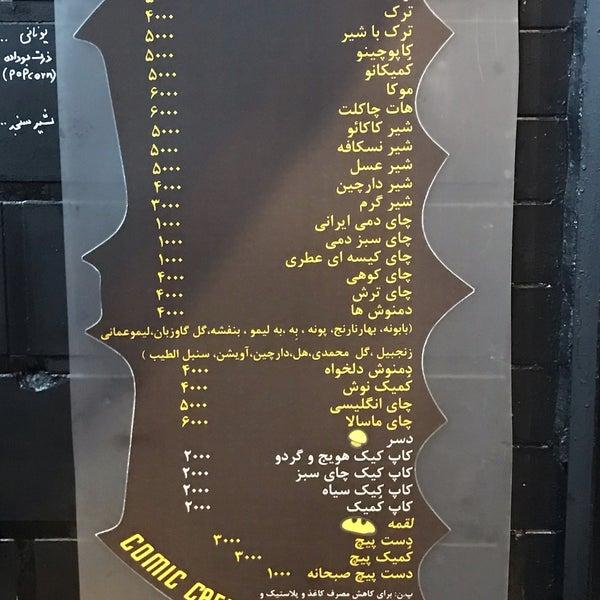 ترک ۴۰۰۰
ترک با شیر ۵۰۰۰
کاپوچینو ۵۰۰۰
کمیکانو ۵۰۰۰
موکا ۶۰۰۰
هات چاکلت ۶۰۰۰
شیر کاکائو ۵۰۰۰
شیر نسکافه ۵۰۰۰
شیر عسل ۵۰۰۰
شیر دارچین ۴۰۰۰
شیر گرم ۳۰۰۰
چای دمی ایرانی ۱۰۰۰
چای سبز دمی ۱۰۰۰
چای کیسه ای عطری ۱۰۰۰
چای کوهی ۴۰۰۰
چای ترش ۴۰۰۰
دمنوش ها ۴۰۰۰
(بابونه، بهارنارنج، پونه ، به ،به لیمو ، بنفشه،گل گاوزبان،لیموعمانی
زنجبیل ،گل محمدی،هل،دارچین،آویشن، سنبل الطیب )
دمنوش دلخواه ۴۰۰۰
کمیک نوش ۴۰۰۰
چای انگلیسی ۵۰۰۰
چای ماسالا ۶۰۰۰
دسر
کاپ کیک هویج و گردو ۲۰۰۰
کاپ کیک چای سبز ۲۰۰۰
کاپ کیک سیاه ۲۰۰۰
کاپ کمیک ۲۰۰۰
لقمه
دست پیچ ۳۰۰۰
کمیک پیچ ۳۰۰۰
دست پیچ صبحانه ۱۰۰۰
پ.ن: برای کاهش مصرف کاغذ و پلاستیک و
COMIC
یونانی ..
ذرت بوداده
(POPCORN)
شیر سنجد ..